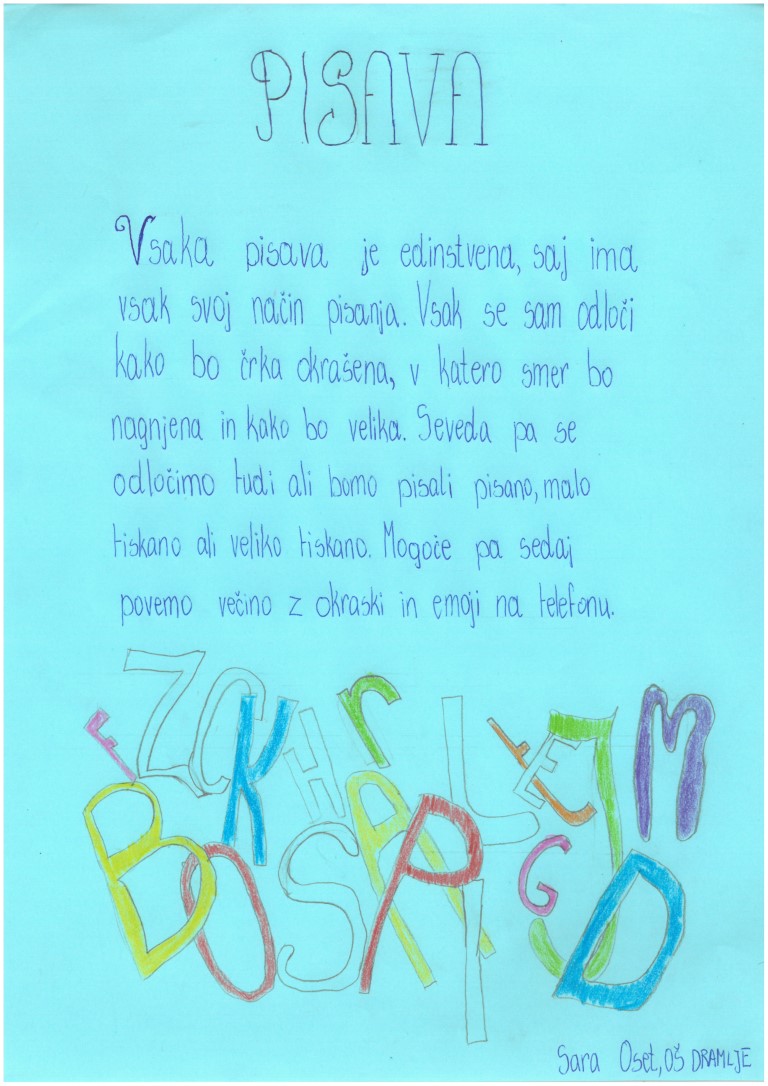 PISAVA
Vsaka pisava je edinstvena, saj ima
vsak svoj način pisanja. Vsak se sam odloči
kako bo črka okrašena, v katero smer bo
nagnjena in kako bo velika. Seveda pa se
odločimo tudi ali bomo pisali pisano, malo
tiskano ali veliko tiskano. Mogoče pa sedaj
povemo večino z okraski in emoji na telefonu.
F Z C K H r L t E J M
B O S A P I G D
Sara Oset, OŠ DRAMLJE